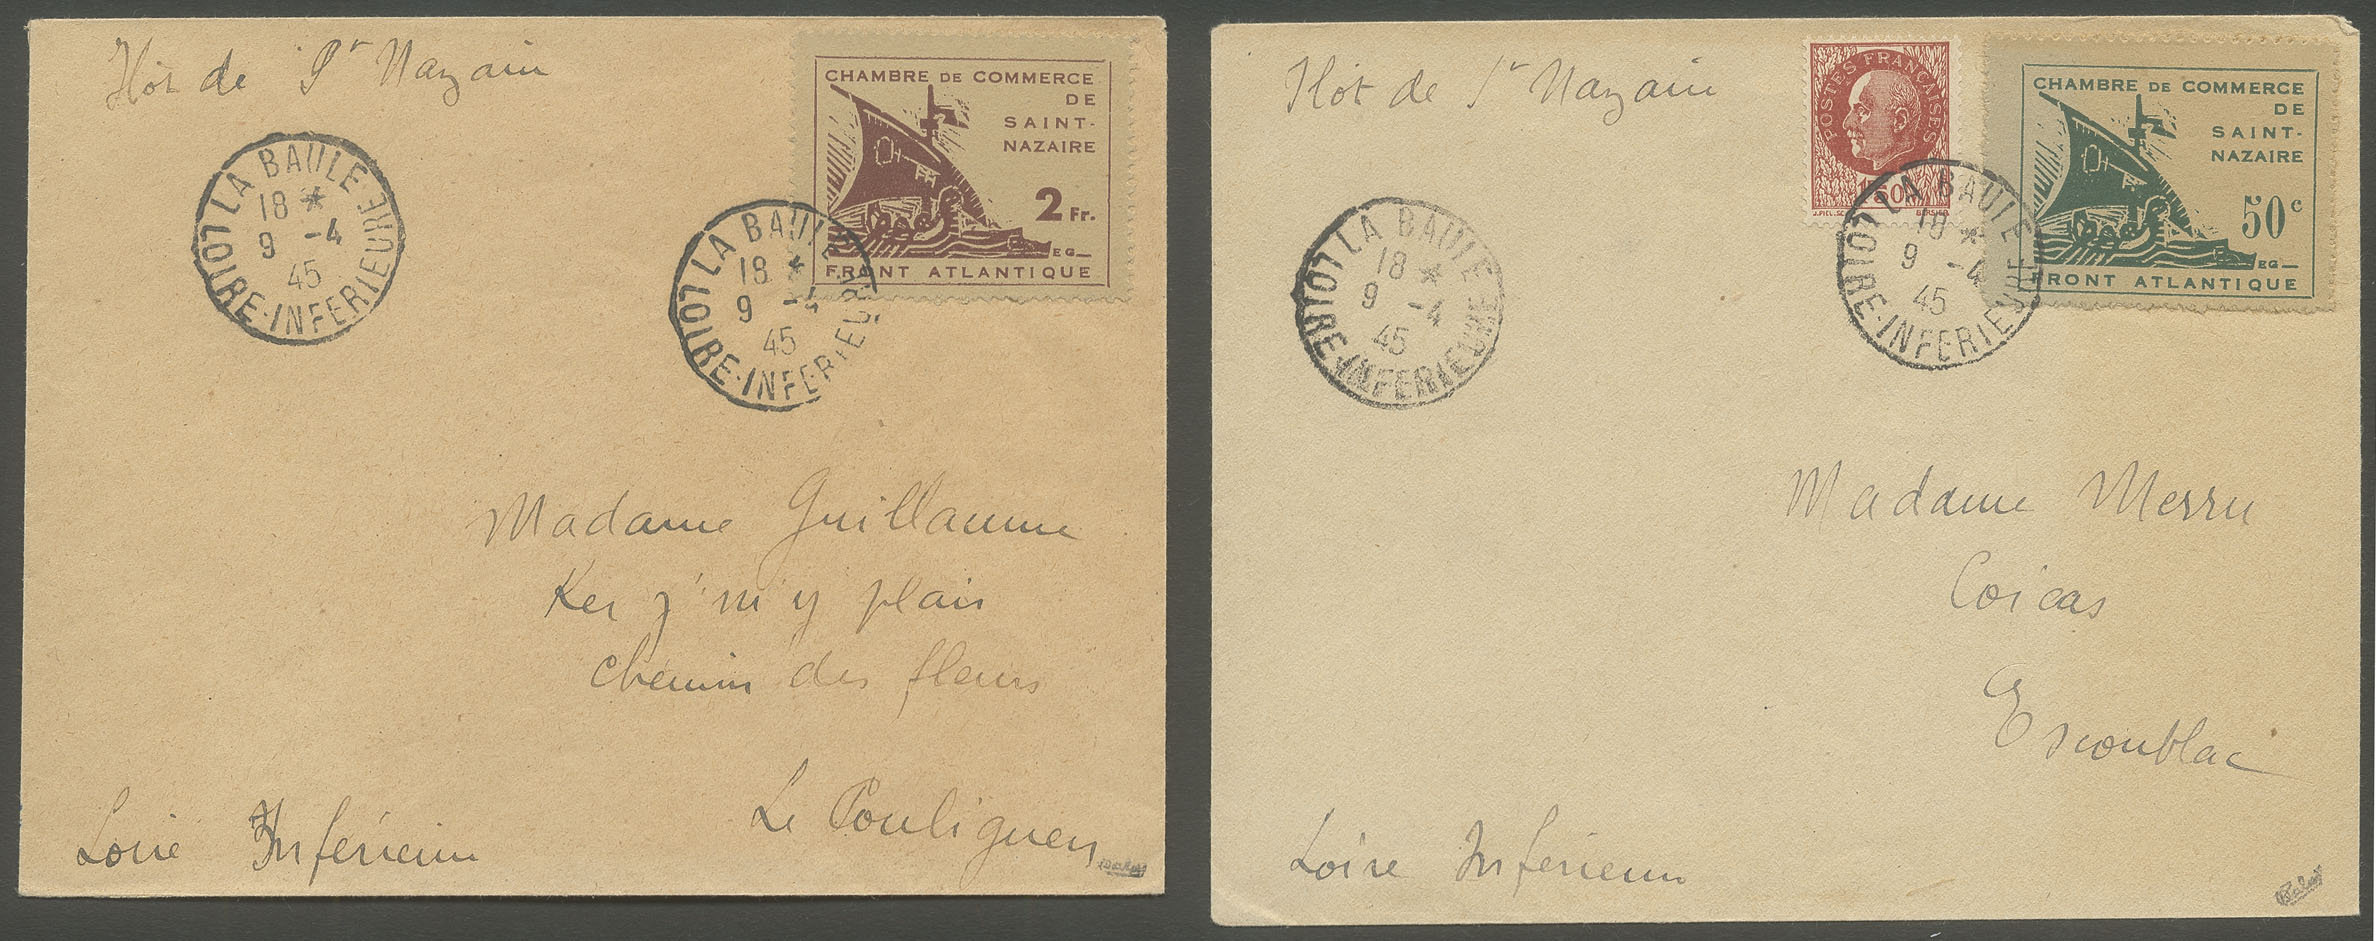 Ilot de St Nazaire
CHAMBRE DE COMMERCE
DE
SAINT-
NAZAIRE
2 Fr.
EG
FRONT ATLANTIQUE
LA BAULE
LOIRE-INFERIEURE
107
18 *
9 -4
45
LA BAULE
LOIRE-INFERIEURE
107
18 *
9 -4
45
Madame Guillaume
Ker j'm'y plais
chemin des fleurs
Le Pouliguen
Loire Inférieure
Ilot de St Nazaire
POSTES FRANÇAISES
1F50
BERSIER
CHAMBRE DE COMMERCE
DE
SAINT-
NAZAIRE
50c
EG
FRONT ATLANTIQUE
LA BAULE
LOIRE-INFERIEURE
107
18 *
9 -4
45
LA BAULE
LOIRE-INFERIEURE
107
18 *
9 -4
45
Madame Merru
Coicas
Escoublac
Loire Inférieure